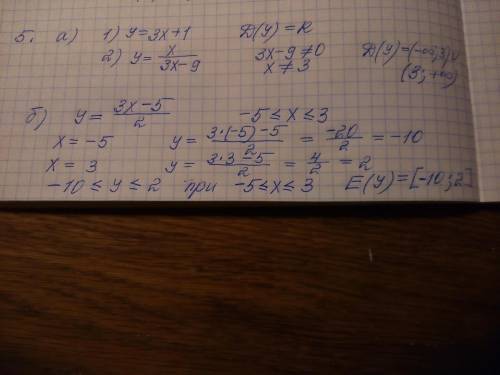 5. а) 1) y = 3x+1 D(y) = R
2) y = x/(3x-9) 3x-9≠0 D(y)=(-∞;3)∪
x ≠ 3 (3;+∞)
б) y = (3x-5)/2 -5 ≤ x ≤ 3
x = -5 y = (3·(-5)-5)/2 = -20/2 = -10
x = 3 y = (3·3-5)/2 = 4/2 = 2
-10 ≤ y ≤ 2 при -5≤x≤3 E(y)=[-10;2]